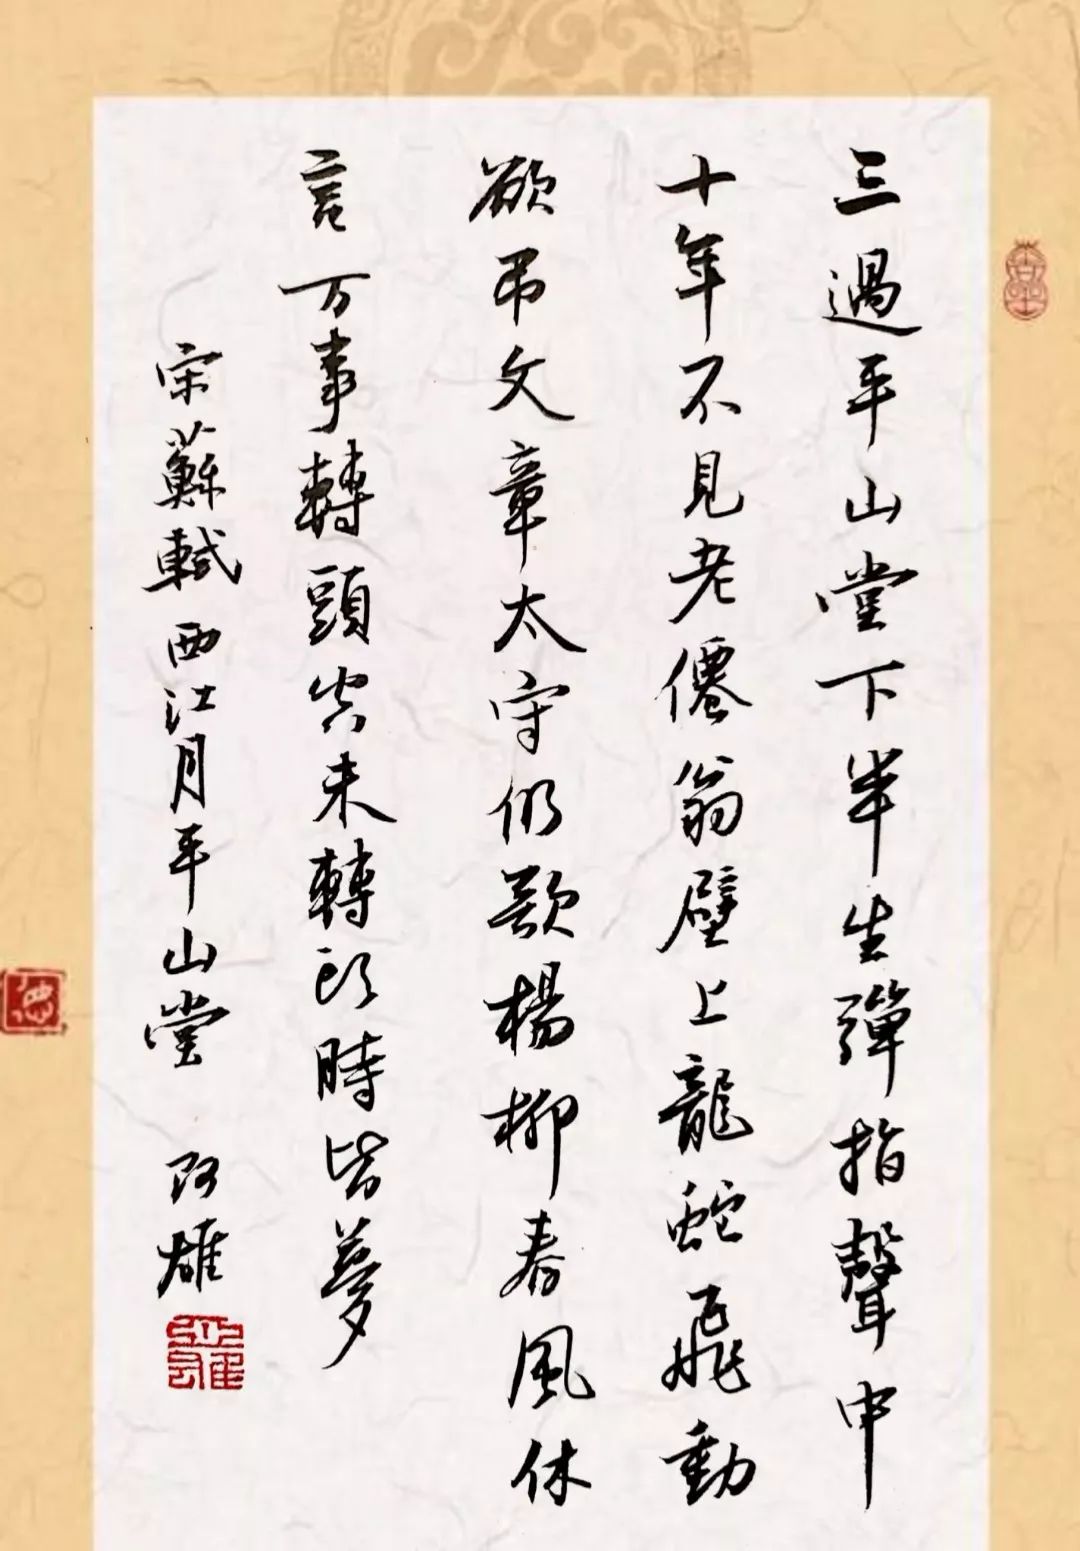 三過平山堂下半生彈指聲申
十年不見老僊翁壁上龍蛇飛動
欲吊文章太守仍歌楊柳春風休
言万事轉頭空未轉頭時皆夢
宋蘇軾西江月平山堂 阿雄